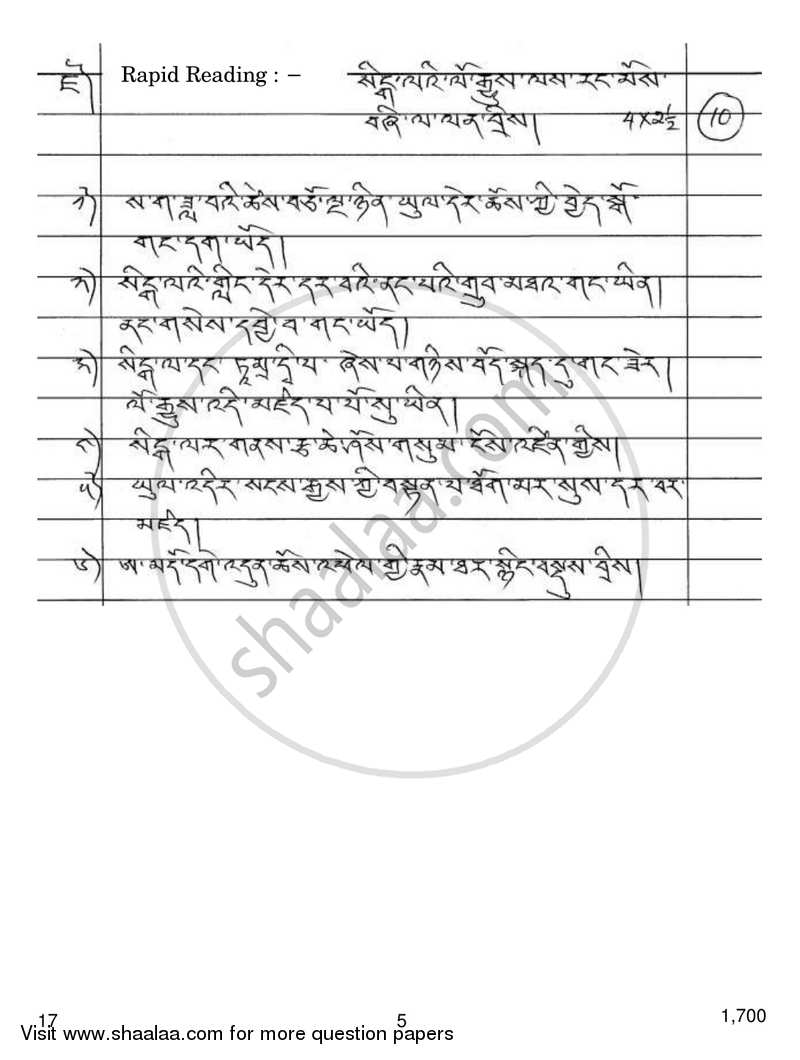 ཇོ༽ Rapid Reading : – སིངྒ་ལའི་ལོ་རྒྱུས་ལས་རང་མོས་
བཞི་ལ་ལན་བྲིས། 4×2½ 10
༡༽ ས་ག་ཟླ་བའི་ཚེས་བཅོ་ལྔ་ཉིན་ཡུལ་དེར་ཆོས་ཀྱི་བྱེད་སྒོ་
གང་དག་ཡོད།
༢༽ སིངྒ་ལའི་གླིང་དེར་དར་བའི་ནང་པའི་གྲུབ་མཐའ་གང་ཡིན།
ནང་གསེས་དབྱེ་བ་གང་ཡོད།
༣༽ སིངྒ་ལ་དང་ ཞེས་པ་གཉིས་བོད་སྐད་དུ་གང་ཟེར།
ལོ་རྒྱུས་འདི་མཛད་པ་པོ་སུ་ཡིན།
༤༽ སིངྒ་ལར་གནས་རྩ་ཆེ་ཤོས་གསུམ་ངོས་འཛིན་གྱིས།
༥༽ ཡུལ་འདིར་སངས་རྒྱས་ཀྱི་བསྟན་པ་ཐོག་མར་སུས་དར་བར་
མཛད།
༦༽ ཨ་མདོ་དགེ་འདུན་ཆོས་འཕེལ་གྱི་རྣམ་ཐར་སྙིང་བསྡུས་བྲིས།
shaalaa.com
17 5 1,700
Visit www.shaalaa.com for more question papers